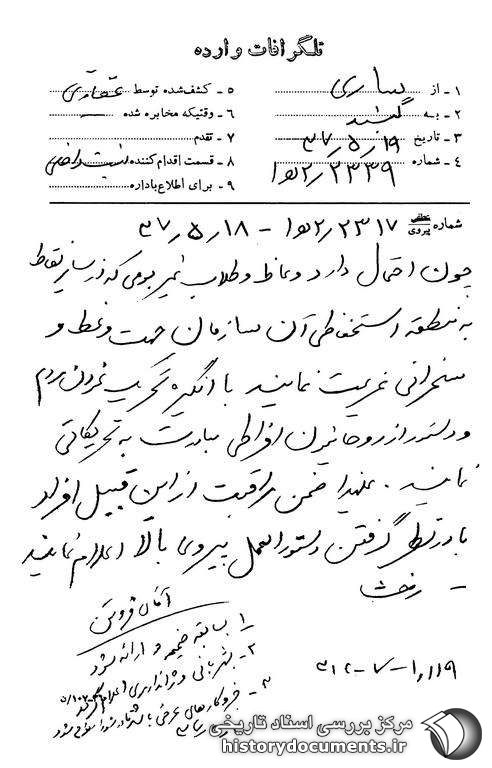 تلگرافات وارده
۱ - از ساری
۲ - به گنبد
۳ - تاریخ ۳۷٫۵٫۱۹
۴ - شماره ۱۵۲٫۲۳۳۹
۵ - کشف‌شده توسط
۶ - وقتیکه مخابره شده —
۷ - تقدم
۸ - قسمت اقدام‌کننده
۹ - برای اطلاع باداره
شماره عطفی پیروی ۲۳۱۷٫۱۵۲ - ۳۷٫۵٫۱۸
چون احتمال دارد وعاظ و طلاب غیر بومی که در سایر نقاط
به منطقه استحفاظی آن سازمان جهت وعظ و
سخنرانی عزیمت نمایند با انگیزه تحریک نمودن مردم
و دستور از روحانیون افراطی مبادرت به تحریکاتی
نمایند. علیهذا ضمن مراقبت از این قبیل افراد
با در نظر گرفتن دستورالعمل پیروی بالا اعلام نمایند
آقای فروتن
۱ - سابقه ضمیمه و ارائه شود
۲ - بشهربانی و ژاندارمری اعلام گردد
۳ -
مرکز بررسی اسناد تاریخی
historydocuments.ir